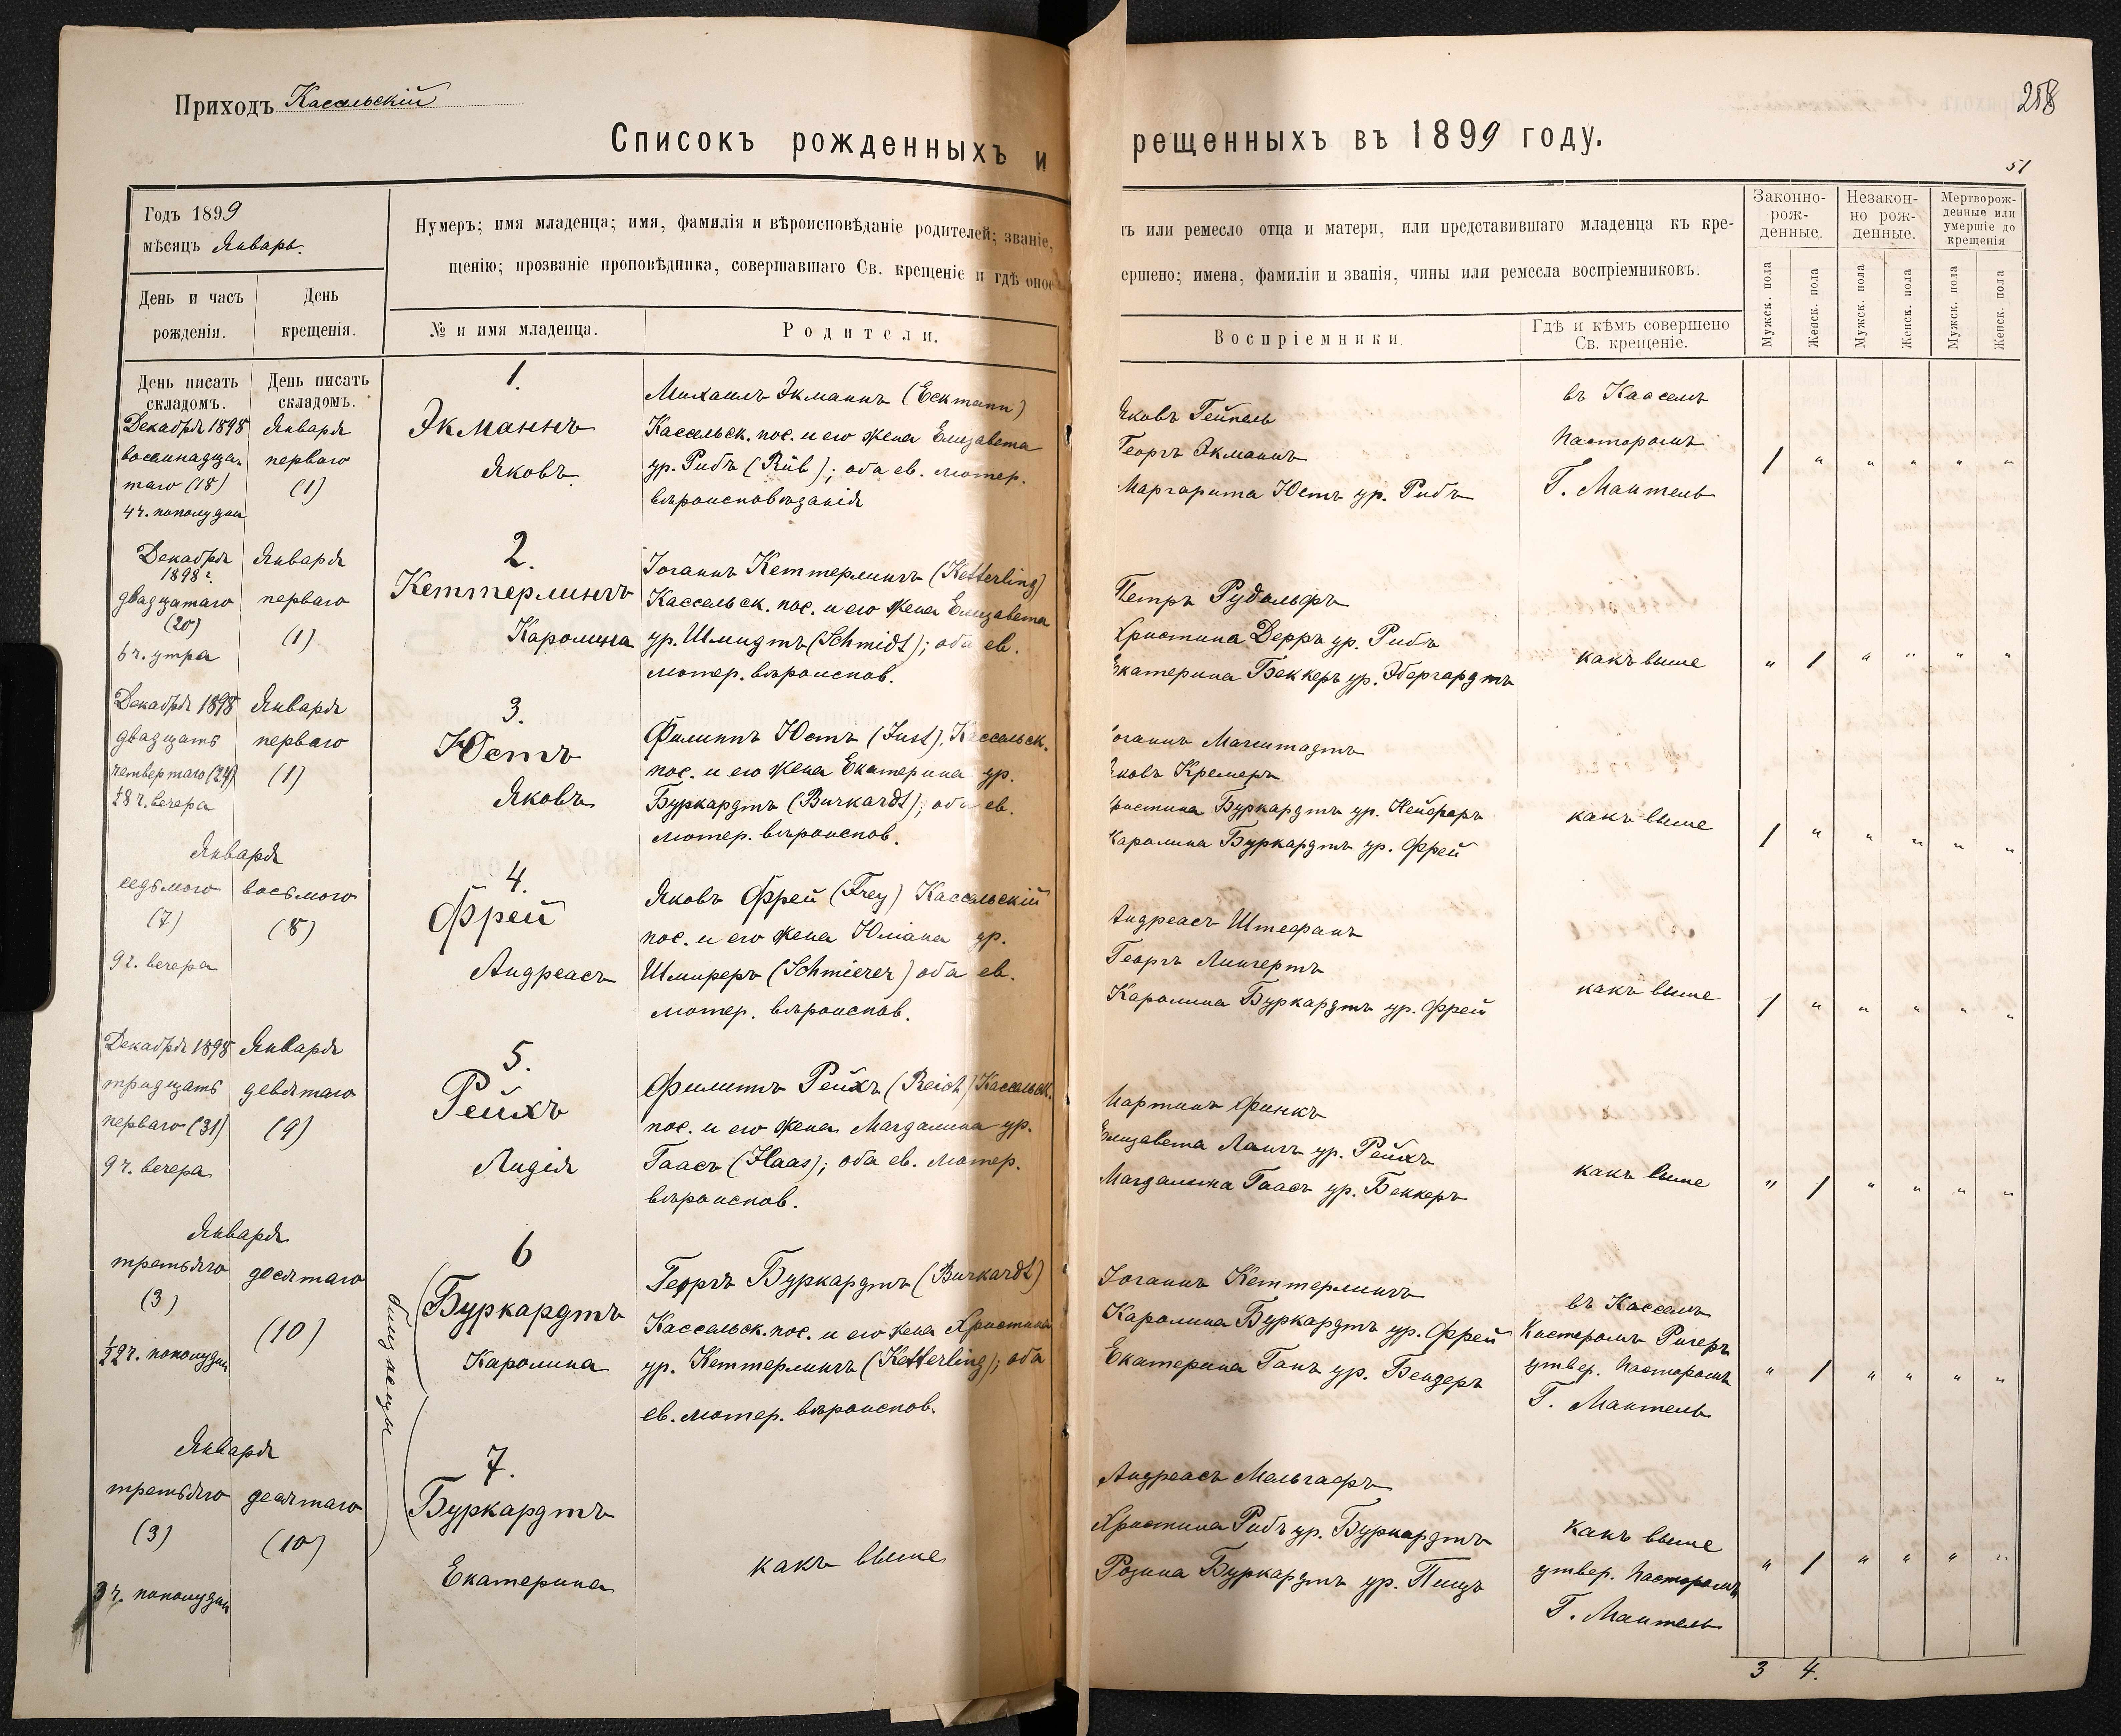 Приходъ Касельскій
258
Списокъ рожденныхъ и
рещенныхъ въ 1899 году.
51
Годъ 1899
мѣсяцъ Январь.
День и часъ
рожденія.
День
крещенія.
Нумеръ; имя младенца; имя, фамилія и вѣроисповѣданіе родителей; званіе,
щенію; прозваніе проповѣдника, совершавшаго Св. крещеніе и гдѣ оное
№ и имя младенца.
Родители.
ъ или ремесло отца и матери, или представившаго младенца къ кре-
ершено; имена, фамиліи и званія, чины или ремесла воспріемниковъ.
Воспріемники.
Гдѣ и кѣмъ совершено
Св. крещеніе.
Законно-
рож-
денные.
Незакон-
но рож-
денные.
Мертворож-
денные или
умершіе до
крещенія
Мужск. пола
Женск. пола
Мужск. пола
Женск. пола
Мужск. пола
Женск. пола
День писать
складомъ.
День писать
складомъ.
Декабря 1898
восемнадца-
таго (18)
4 ч. пополудни
Января
перваго
(1)
1.
Экманнъ
Яковъ
Михаилъ Экманнъ (Eckmann)
Кассельск. пос. и его жена Елизавета
ур. Рибъ (Rüb); оба ев. лютер.
вѣроисповѣданія
Яковъ Гейнель
Георгъ Экманнъ
Маргарита Юстъ ур. Рибъ
въ Касселѣ
пасторомъ
Г. Мантель
1 " " " " "
Декабря
1898 г.
двадцатаго
(20)
6 ч. утра
Января
перваго
(1)
2.
Кеттерлингъ
Каролина
Іоганнъ Кеттерлингъ (Ketterling)
Кассельск. пос. и его жена Елизавета
ур. Шмидтъ (Schmidt); оба ев.
лютер. вѣроиспов.
Петръ Рудольфъ
Христина Дерръ ур. Рибъ
Екатерина Беккеръ ур. Эбергардтъ
какъ выше
" 1 " " " "
Декабря 1898
двадцать
четвертаго (24)
½8 ч. вечера
Января
перваго
(1)
3.
Юстъ
Яковъ
Филиппъ Юстъ (Just), Кассельск.
пос. и его жена Екатерина ур.
Буркардтъ (Burkardt); оба ев.
лютер. вѣроиспов.
оганнъ Магштадтъ
Яковъ Кремеръ
ристина Буркардтъ ур. Нейферъ
Каролина Буркардтъ ур. Фрей
какъ выше
1 " " " " "
Января
седьмого
(7)
9 ч. вечера
восьмого
(8)
4.
Фрей
Андреасъ
Яковъ Фрей (Frey) Кассельскій
пос. и его жена Юліана ур.
Шмиреръ (Schmierer) оба ев.
лютер. вѣроиспов.
Андреасъ Штефанъ
Георгъ Лингертъ
Каролина Буркардтъ ур. Фрей
какъ выше
1 " " " " "
Декабря 1898
тридцать
перваго (31)
9 ч. вечера
Января
девятаго
(9)
5.
Рейхъ
Лидія
Филиппъ Рейхъ (Reich) Кассельск.
пос. и его жена Магдалина ур.
Гаасъ (Haas); оба ев. лютер.
вѣроиспов.
Мартинъ Финкъ
Елизавета Лангъ ур. Рейхъ
Магдалина Гаасъ ур. Беккеръ
какъ выше
" 1 " " " "
Января
третьяго
(3)
½2 ч. пополудни
десятаго
(10)
близнецы
6
Буркардтъ
Каролина
Георгъ Буркардтъ (Burkardt)
Кассельск. пос. и его жена Христина
ур. Кеттерлингъ (Ketterling); оба
ев. лютер. вѣроиспов.
Іоганнъ Кеттерлингъ
Каролина Буркардтъ ур. Фрей
Екатерина Ганъ ур. Бендеръ
въ Касселѣ
Кистеромъ Ригеръ
утвер. пасторомъ
Г. Мантель
" 1 " " " "
Января
третьяго
(3)
3 ч. пополудни
десятаго
(10)
7.
Буркардтъ
Екатерина
какъ выше
Андреасъ Мельгафъ
Христина Рибъ ур. Буркардтъ
Розина Буркардтъ ур. Пицъ
какъ выше
утвер. пасторомъ
Г. Мантель
" 1 " " " "
3 4.